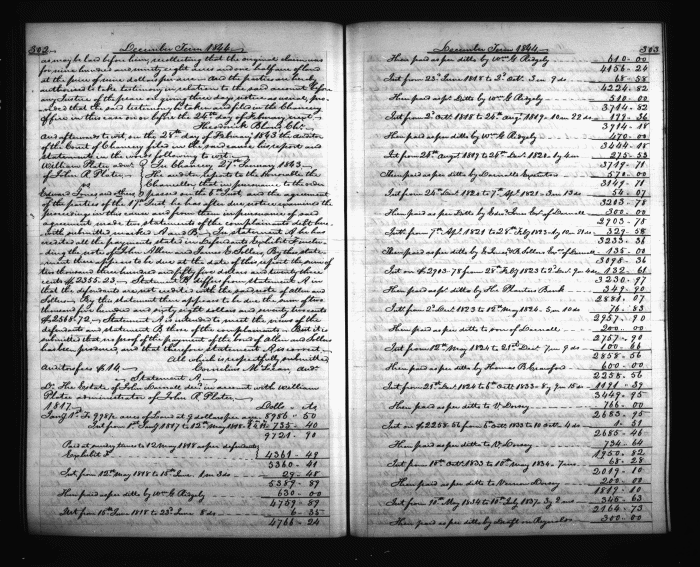 302 December Term 1844
as may be laid before him, recollecting that the original claim was
for nine hundred ninety eight acres and one half acre of land
at the price of nine dollars per acre. And the parties are hereby
authorised to take testimony in relation to the said account before
any Justice of the peace on giving three days notice as usual, pro-
vided that the said testimony be taken and filed in the Chancery
office in this case on or before the 24th day of February next
Theodorick Bland Chr.
And afterwards to wit, on the 28th day of February 1843 the auditor
of the Court of Chancery filed in the said cause his report and
statements in the words following to wit.
William Plater admr In Chancery 27th January 1843
of John R. Plater The auditor reports to the Honorable the
vs Chancellor that in pursuance to the order
Edward Jones and others passed on the 6th Inst. and the agreement
of the parties of the 17th Inst. he has after due notice examined the
proceedings in this cause and from them in pursuance of said
agreement, made two statements of the complainants debt here
with submitted marked A and B. In statement A he has
credited all the payments stated in defendants Exhibit F includ-
ing the notes of John Allen and James C. Sellers, By this state-
ment there appears to be due at the date of this report the sum of
two thousand three hundred and fifty five dollars and twenty three
cents $2355.23 Statement B differs from statement A in
that the defendants are not credited with the notes of Allen and
Sellers. By this statement there appears to be due the sum of two
thousand five hundred and sixty eight dollars and seventy two cents
$2568.72 Statement A is intended to meet the views of the
defendants and statement B those of the complainants. But it is
submitted that as proof of the payment of the bond of Allen and Sellers
has been produced and that therefore statement A is correct.
All which is respectfully submitted
auditors fee $14. Cornelius McLean audr
Statement A.
Dr. The Estate of John Darnall decd in account with William
Plater administrator of John R. Plater,
1817 Dolls Cts
Jany 1st To 998½ acres of Land at 9 dollars per acre 8986-50
Int from 1st Jany 1817 to 12th May 1818 735-40
9721-90
Paid at sundry times to 12 May 1818 as per defendants
Exhibit F 4361-49
5360-41
Int from 12th May 1818 to 15th June 1m 3ds 29-48
5389-89
Then paid as per ditto by Wm G Ridgely 630-00
4759-89
Int from 15th June 1818 to 23d June 8 ds 6-35
4766-24
December Term 1844 303
Then paid as per ditto by Wm G Ridgely 610-00
4156-24
Int from 23d June 1818 to 2d Octr. 3m 9 ds 68-58
4224-82
Then paid as pr. Ditto by Wm G Ridgely 510-00
3714-82
Int from 2d Octr 1818 to 24th Augt 1819-10m 22 ds 199-36
3914-18
Then paid as per ditto by Wm G Ridgely 470-00
3444-18
Int from 24th Augt 1819 to 24th Decr 1820 1y 4m 275-53
3719-71
Then paid as per ditto by Darnalls Executors 570-00
3149-71
Int from 24th Decr 1820 to 7th Apl 1821-3m 13 ds 54-07
3203-78
Then paid as per Ditto by Edwd Jones Exr of Darnall 300-00
2903-78
Int from 7th Apl 1821 to 28th Feby 1823-1y 10m 21 ds 329-58
3233-36
Then paid as per ditto by E. Jones & R. Sellers Exr of Darnall 135-00
3098-36
Int on $2903-78 from 28th Feby 1823 to 2d Decr 9m 4ds 132-61
3230-97
Then paid as pr. ditto by the Planters Bank 349-90
2881-07
Int from 2d Decr 1823 to 12th May 1824. 5m 10 ds 76-83
2957-90
Then paid as per ditto to son of Darnall 200-00
2757-90
Int from 12th May 1824 to 21st Decr 7m 9 ds 100-66
2858-56
Then paid as per ditto by Thomas B Crauford 600-00
2258-56
Int from 21st Decr 1824 to 6th Octr 1833-8y 9m 15 ds 1191-39
3449-95
Then paid as per ditto to V Dorsey 766-00
2683-95
Int on $2258-56 from 6th Octr 1833 to 10th Octr 4 ds 1-51
2685-46
Then paid as per ditto to V. Dorsey 734-64
1950-82
Int from 10th Octr 1833 to 10th May 1834-7 ms 68-28
2019-10
Then paid as per ditto to Vernon Dorsey 200-00
1819-10
Int from 10th May 1834 to 10th July 1837-3y 2 ms 345-63
2164-73
Then paid as per ditto by draft on Reynolds 300-00